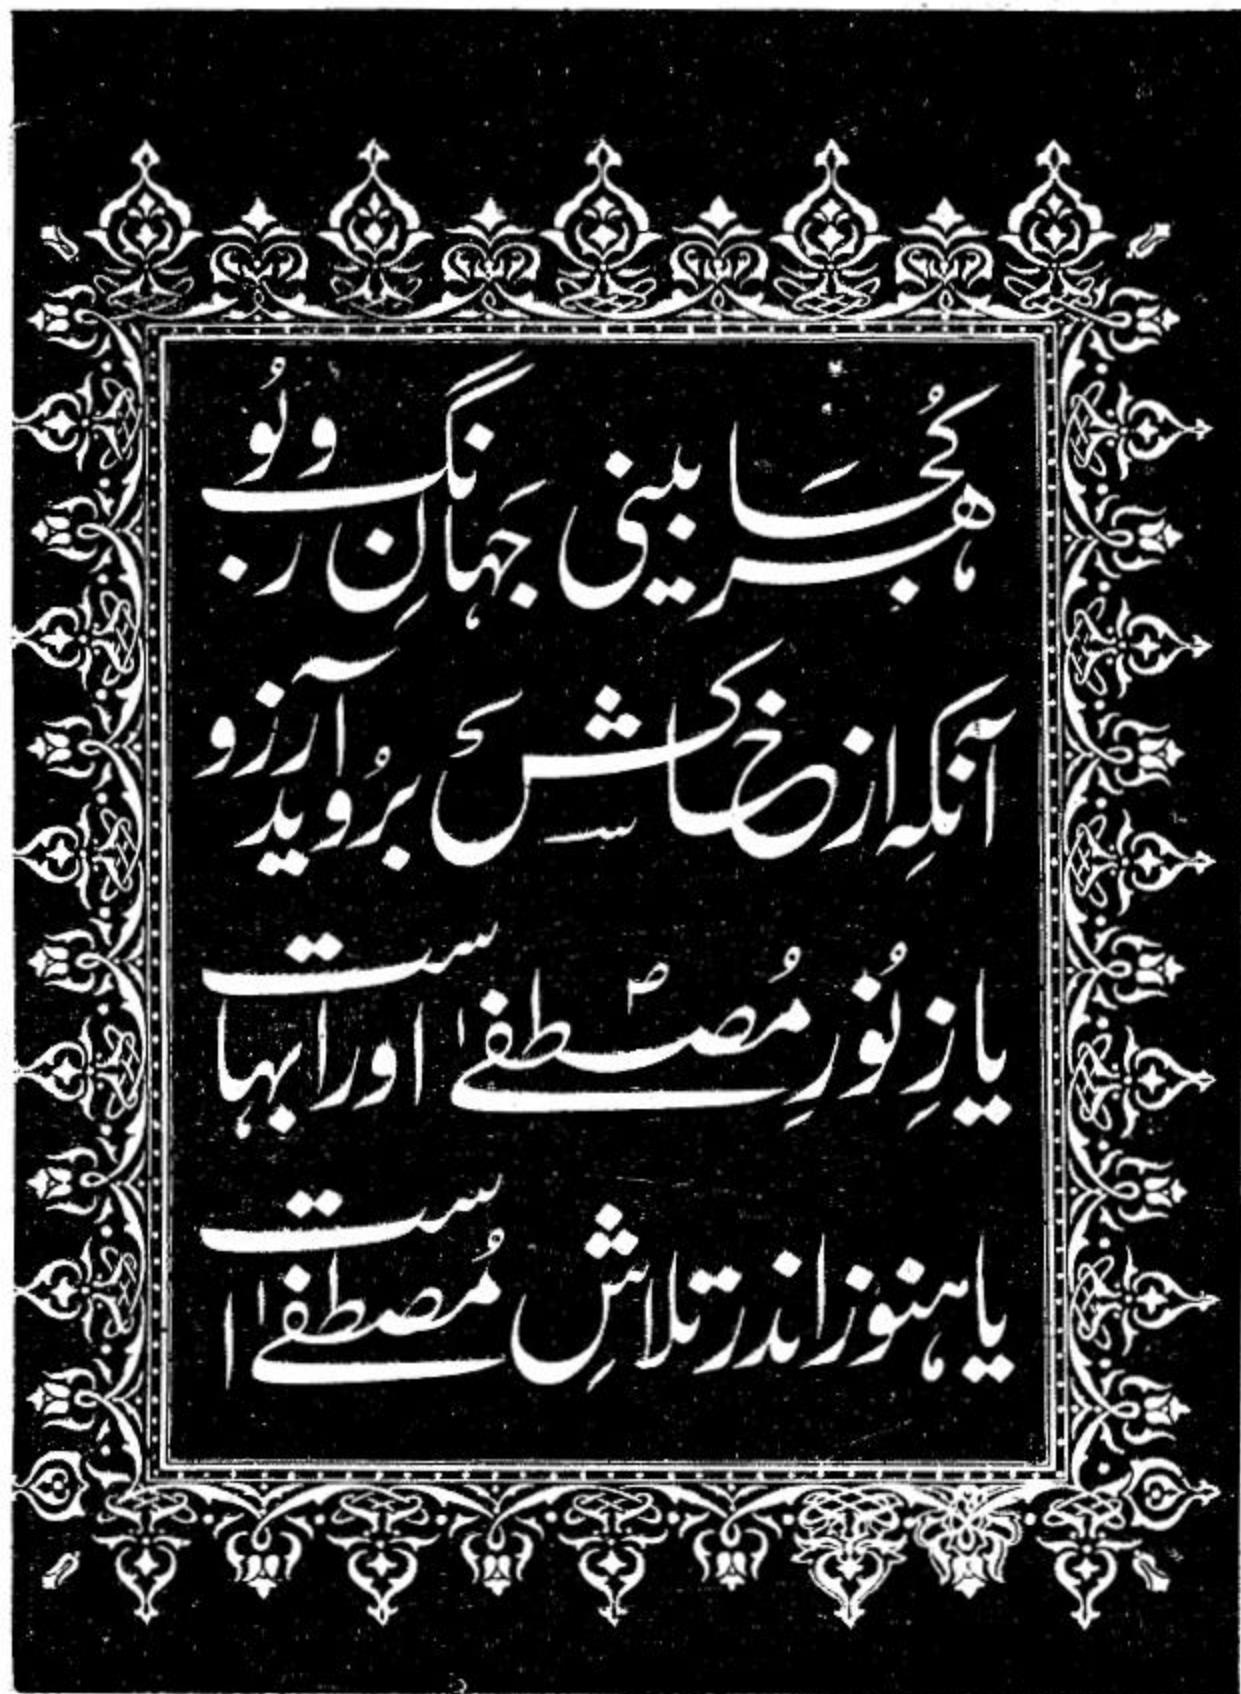 هر کُجا بینی جَہانِ رنگ و بُو
آنکہ از خاکش بِرُوید آرزو
یا زِ نُورِ مُصطفےٰؐ او را بہاست
یا ہنوز اندر تلاشِ مُصطفےٰ است